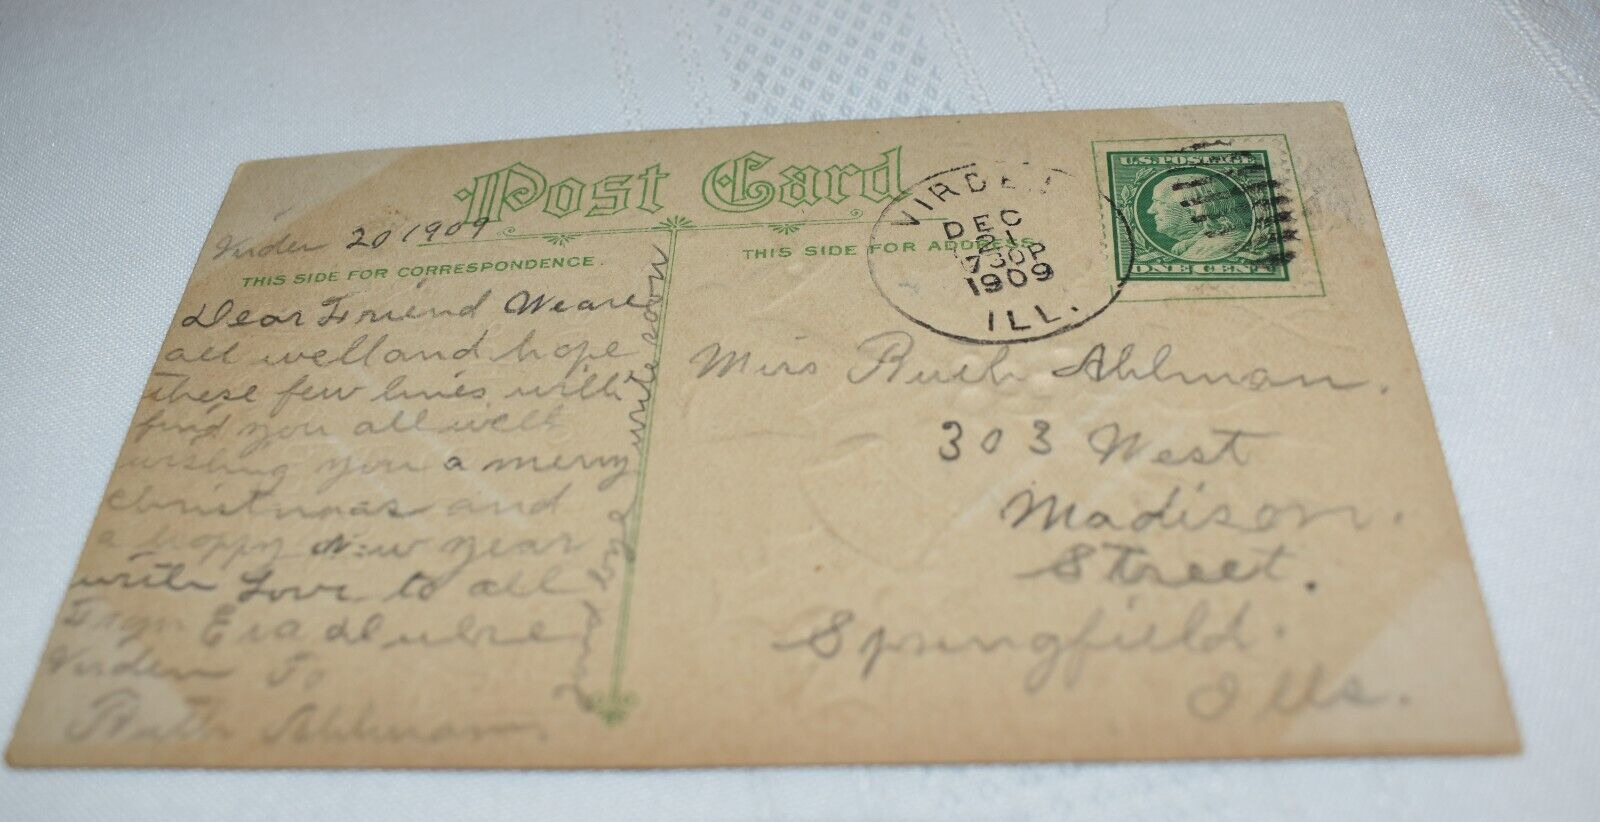 Post Card
Virden 20 1909
THIS SIDE FOR CORRESPONDENCE.
Dear Friend We are
all well and hope
these few lines will
find you all well
wishing you a merry
christmas and
a happy New year
with Love to all
From Era
Virden To
Ruth Ahlman.
write soon
THIS SIDE FOR ADDRESS
VIRDEN
DEC
21
730P
1909
ILL.
U.S. POSTAGE
ONE CENT
Miss Ruth Ahlman.
303 West
Madison.
Street.
Springfield.
Ills.